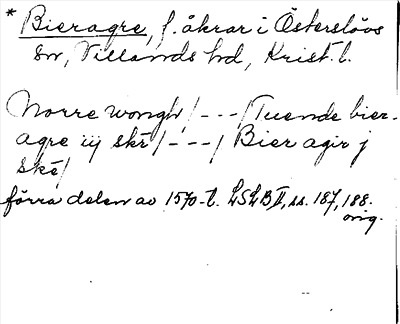 * Bieragre, f. åkrar i Österslövs
sn, Villands hd, Krist. l.
Norre wongh /---/ Tuende bier-
agre iij skē /---/ Bier agir j
skē /
förra delen av 1570-t. LSLB II, ss. 187, 188.
orig.